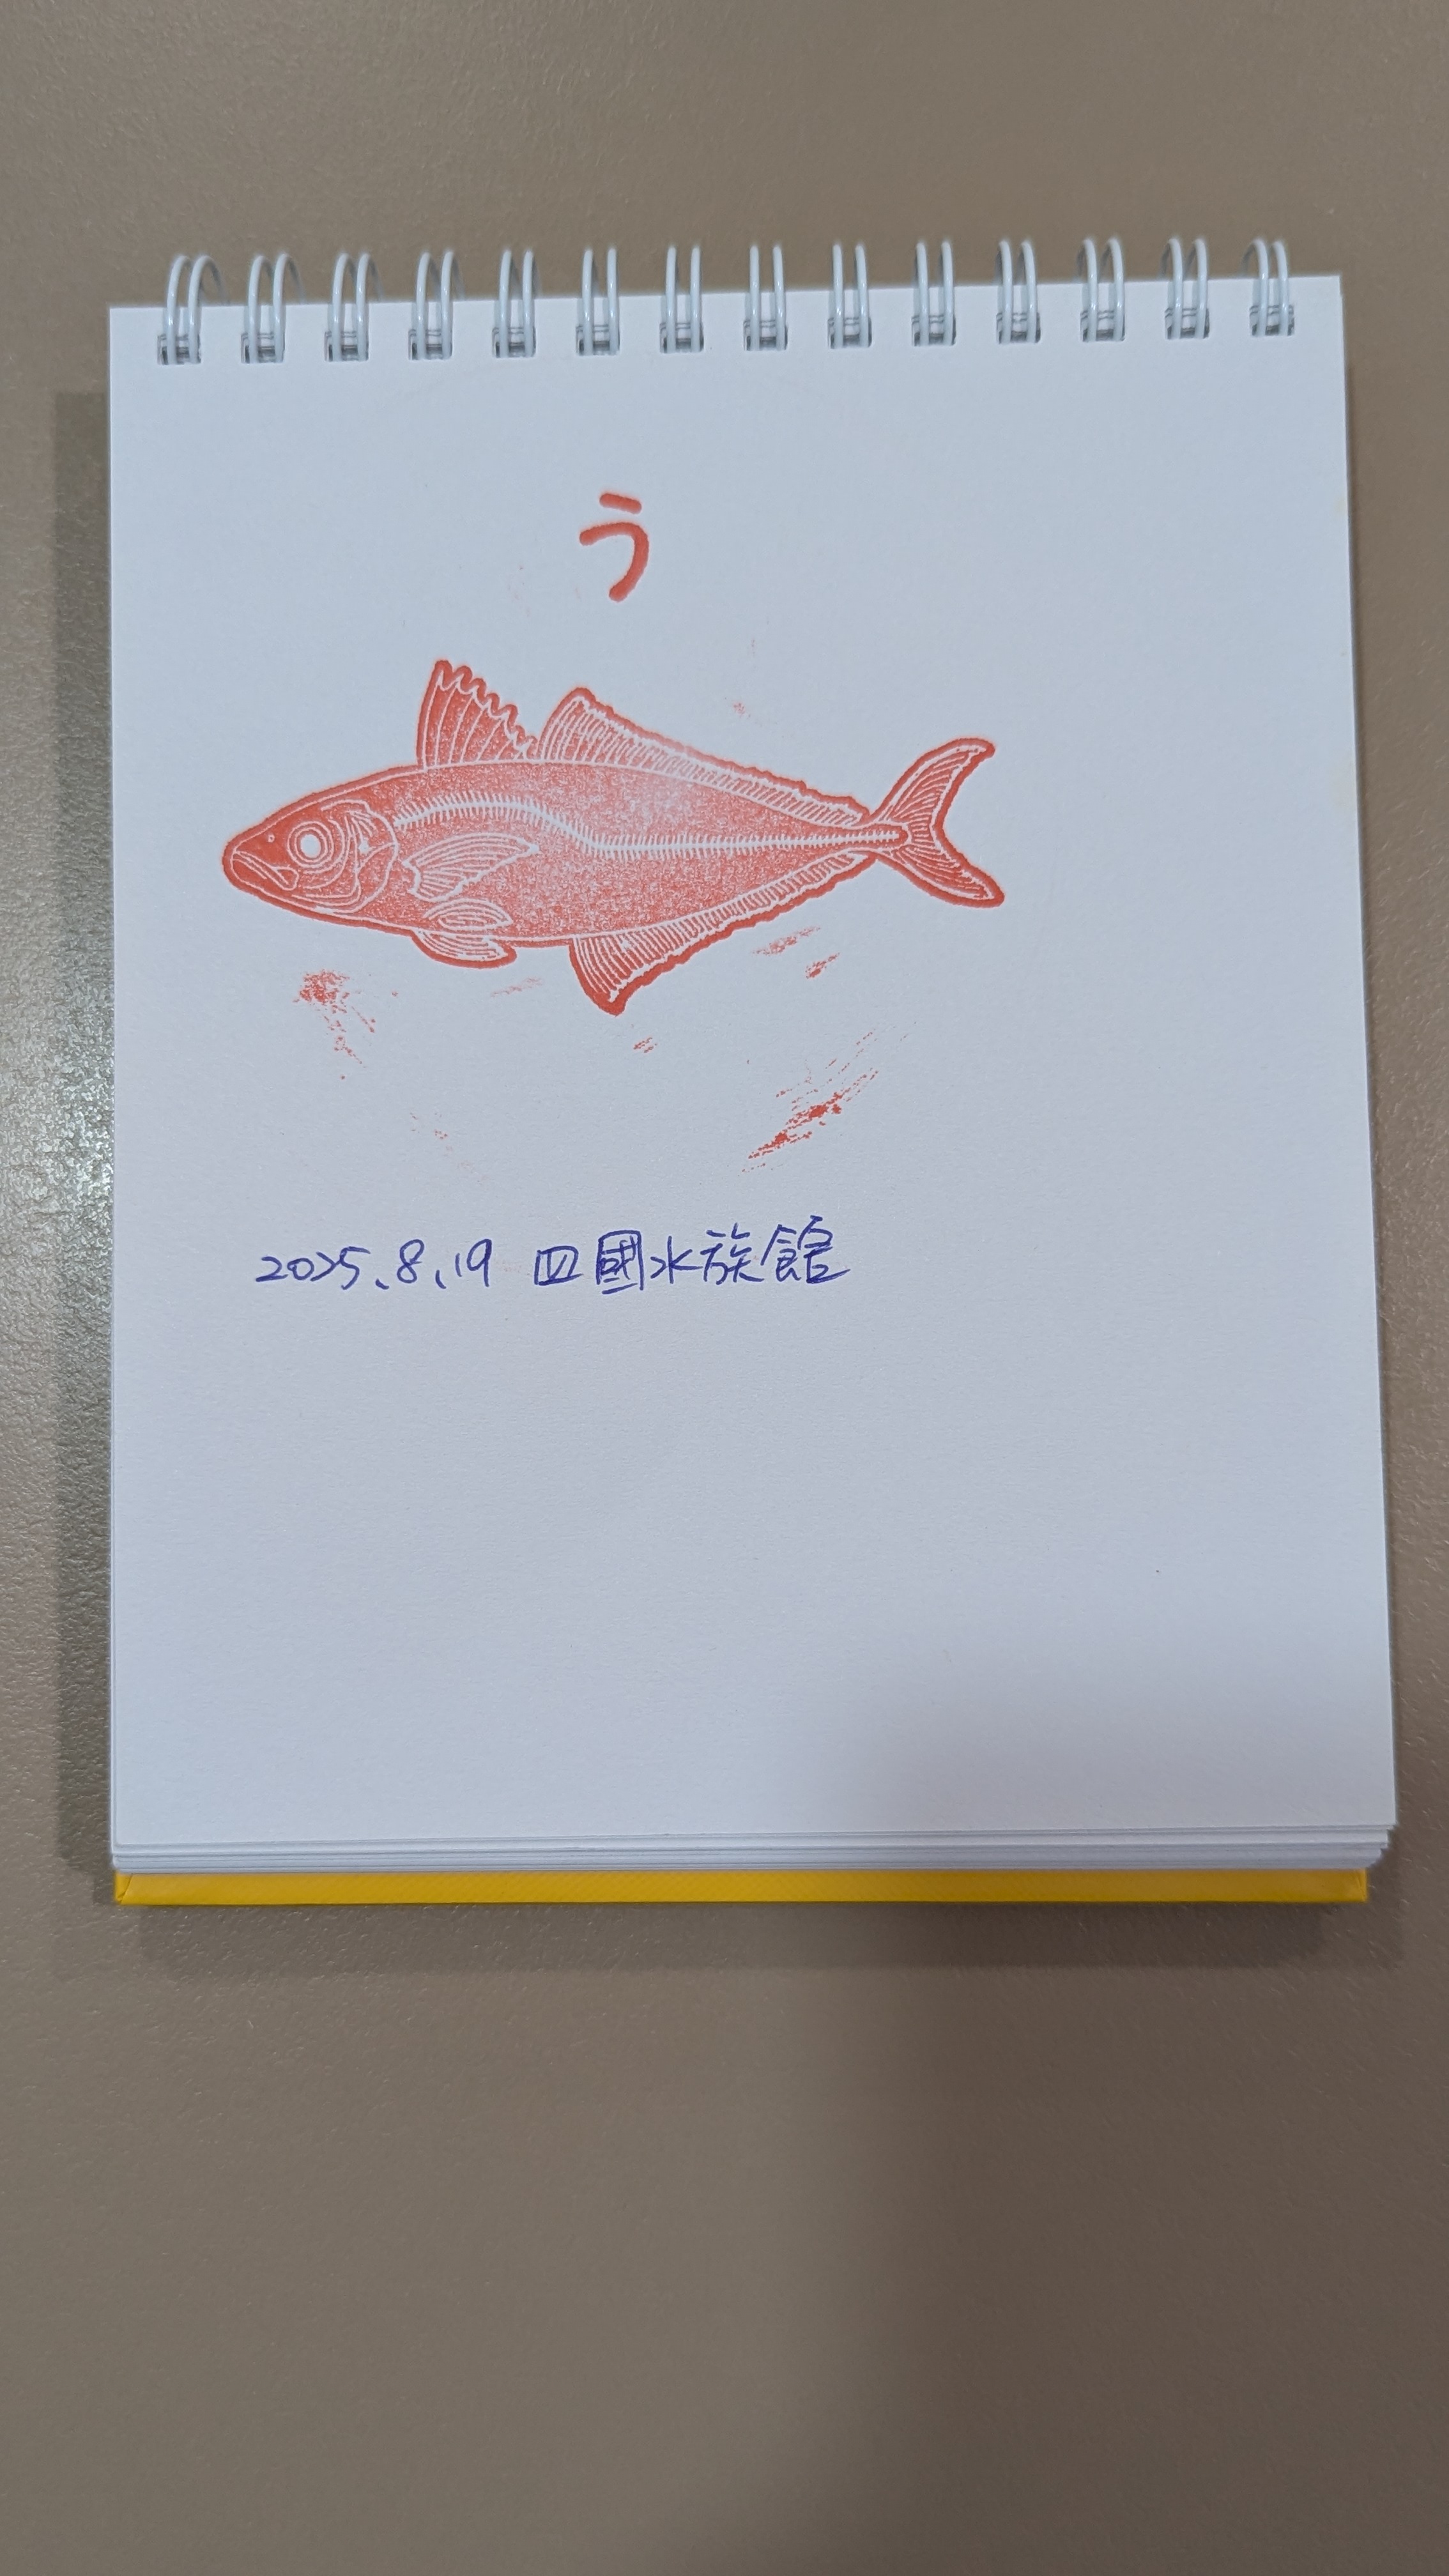 う
2025.8.19 四國水族館